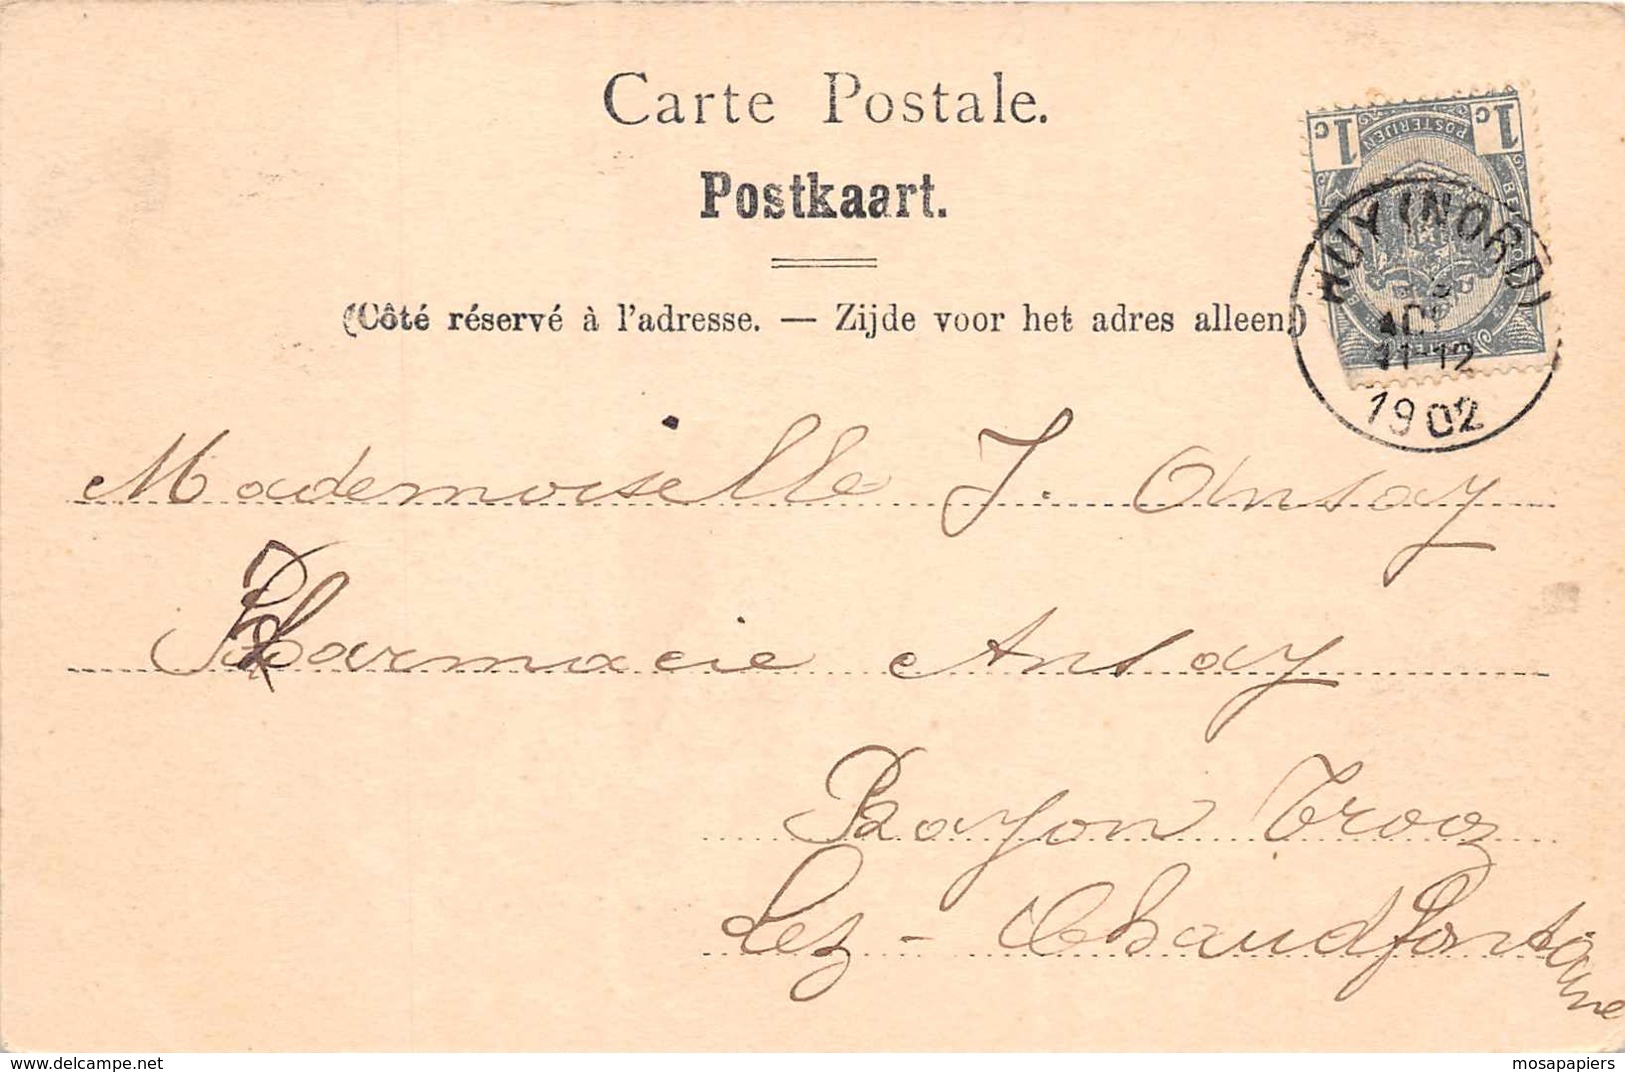 Carte Postale.
Postkaart.
(Côté réservé à l'adresse. — Zijde voor het adres alleen.)
1c 1c
POSTERIJEN
HUY (NORD)
11-12
1902
Mademoiselle J. Ansay
Pharmacie Ansay
Rayon Trooz
Lez-Chaudfontaine
delcampe.net
mosapapiers